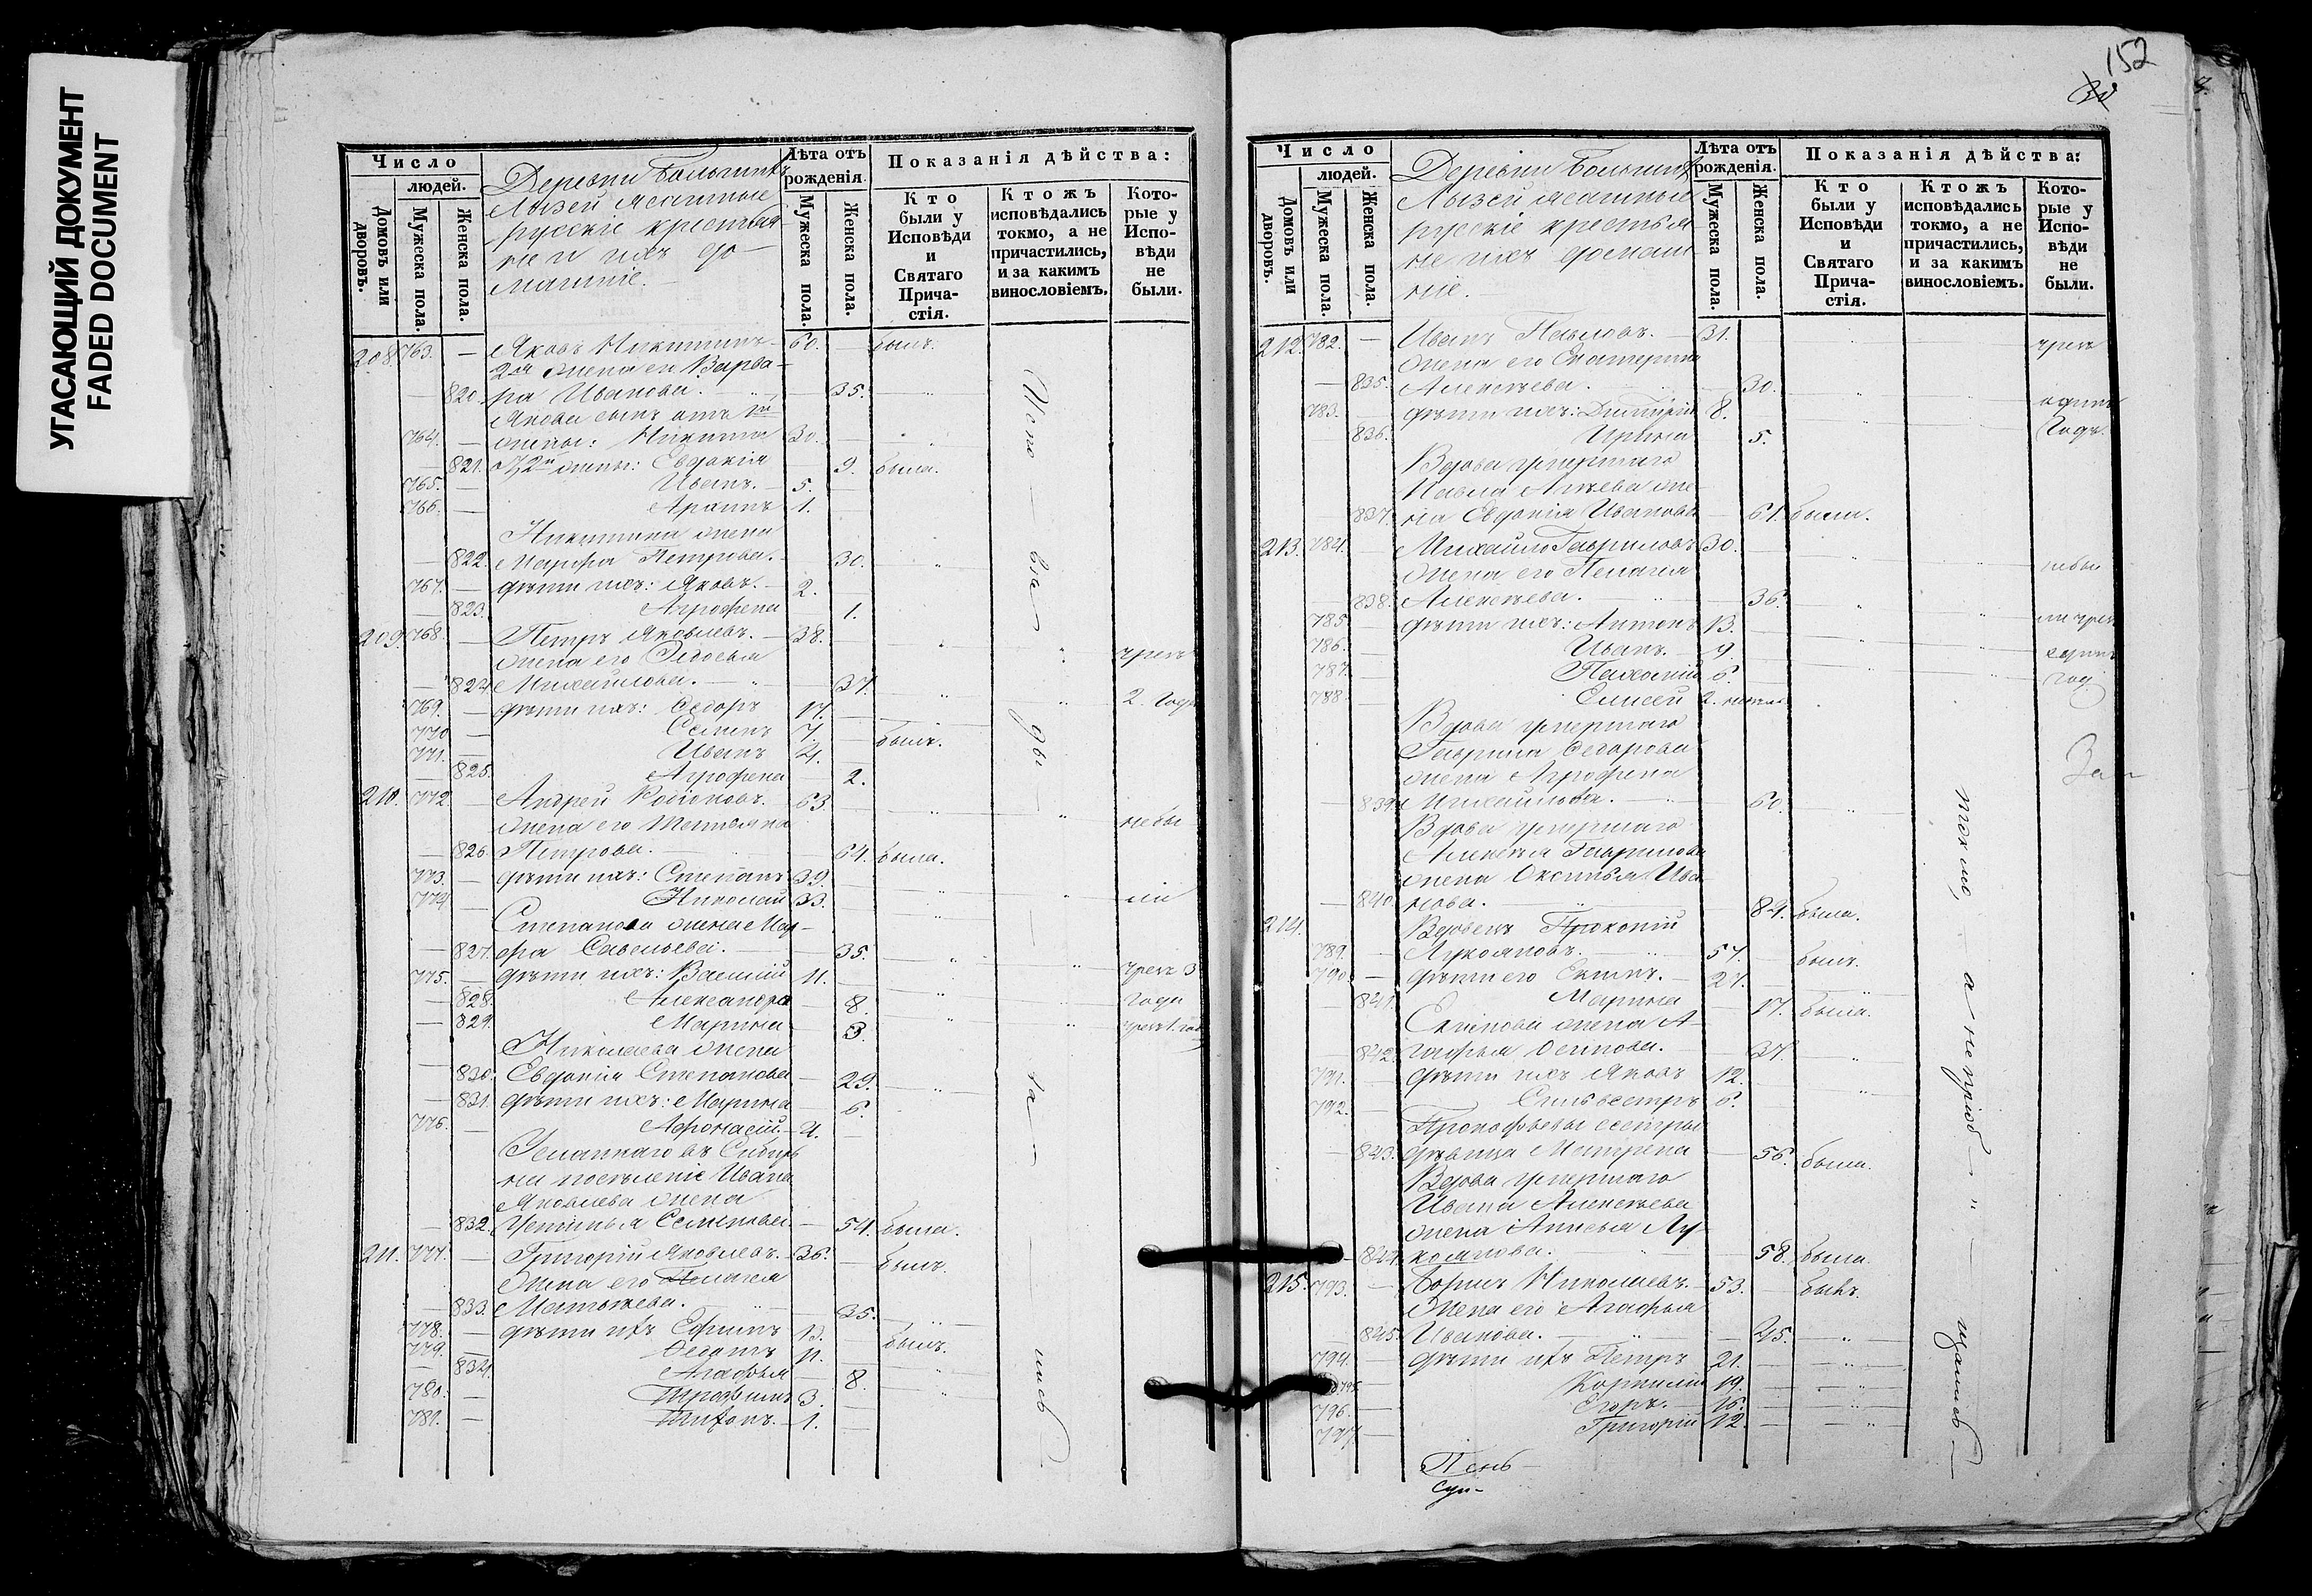 УГАСАЮЩИЙ ДОКУМЕНТ
FADED DOCUMENT
Число
людей.
Домовъ или дворовъ.
Мужеска пола.
Женска пола.
Деревни Большихъ
Лызей ясашные
русскіе крестья-
не и ихъ до-
машніе.
Лѣта отъ рожденія.
Мужеска пола.
Женска пола.
Показанія дѣйства:
Кто были у Исповѣди и Святаго Прича-стія.
Ктожъ исповѣдались токмо, а не причастились, и за какимъ винословіемъ.
Кото-рые у Испо-вѣди не были.
208. 763. — Яковъ Никитинъ — 60. — былъ.
2я жена ег Варва-
— 820. ра Иванова. — " — 35. — "
Якова сынъ отъ 1й
764. — жены: Никита 30. — "
— 821. отъ 2й жены: Евдокія — 9. была.
765. — Иванъ. — 5.
766. — Архипъ 1.
Никитина жена
— 822. Марфа Петрова. — 30. "
767. — дѣти ихъ: Яковъ. — 2.
— 823. Агрофена — 1.
209. 768. — Петръ Яковлевъ. — 38. — "
жена его Федосья чрезъ
— 824. Михайлова. — " — 37.
769. — дѣти ихъ: Ѳедоръ 17. — " 2. года
770 — Семенъ 7. — былъ.
771. — Иванъ 4.
— 825. Агрофена — 2.
210. 772. — Андрей Родіоновъ. — 63. — "
жена его Татьяна небы
— 826. Петрова. — 64. была.
773. — дѣти ихъ: Степанъ 39.
774 — Николай 33. — " ли
Степанова жена Мар-
— 827. фа Савельева. — 35. — "
775. — дѣти ихъ: Василій 11. — чрезъ 3
— 828. Александра — 8. — " года
— 829. Марина — 3.
Николаева жена
— 830. Евдокія Степанова — 29. — "
— 831. дѣти ихъ: Марина — 6.
776. — Афонасій. — 4. —
Сосланнаго въ Сибирь
на поселеніе Ивана
Яковлева жена
— 832. Устинья Семенова — 54. была.
211. 777. — Григорій Яковлевъ. — 36. — былъ.
жена его Пелагея
— 833. Матвѣева. — " — 35. — "
778. — дѣти ихъ Ефимъ 13. — былъ.
779. — Федотъ 11.
— 834. Агафья — 8. "
780. — Трофимъ 3. — "
781. — Тихонъ. — 1. —
Испо — вѣ — да — ли — сь
152
Число
людей.
Домовъ или дворовъ.
Мужеска пола.
Женска пола.
Деревни Большихъ
Лызей ясашные
русскіе крестья-
не ихъ домаш-
ніе.
Лѣта отъ рожденія.
Мужеска пола.
Женска пола.
Показанія дѣйства:
Кто были у Исповѣди и Святаго Прича-стія.
Ктожъ исповѣдались токмо, а не причастились, и за какимъ винословіемъ.
Кото-рые у Испо-вѣди не были.
212. 782. — Иванъ Павловъ. — 31. чрезъ
жена его Екатерина
— 835. Алексѣева. — 30. — "
783. — дѣти ихъ: Дмитрій 8. одинъ
— 836. Ирина — 5. годъ.
Вдова умершаго
Павла жe-
— 837. на Евдокія Иванова — 61. была.
213. 784. — Михайло Гавриловъ 30. — "
жена его Пелагея небы
— 838. Алексѣева. — " — 36. — "
785 — дѣти ихъ: Антонъ 13. — ли чрезъ
786. — Иванъ. — 9. — одинъ
787. — Пахомій 6. годъ
788. — Елисей 2. недели
Вдова умершаго
Гаврила Ѳедорова
жена Агрофена
— 839. Михайлова. — " — 60. — "
Вдова умершаго
Алексѣя Гаврилова
жена Оксинья Ива-
— 840. нова. — 84. была.
214. Вдовецъ Прокопій
789. — Лукояновъ. — 57. — былъ.
790. — дѣти его Екимъ. — 27. —
— 841. Марина — 17. была.
Екимова жена А-
— 842. гафья Осипова. — 37. "
791. — дѣти ихъ Яковъ 12. —
792. — Сильвестръ 6. — "
Прокофьева сестра
— 843. дѣвица Матрена — 56. была.
Вдова умершаго
Ивана Алексѣева
жена Анисья Лу-
— 844. коянова. — 58. была.
215. 793. — Борисъ Николаевъ. — 53. — былъ.
жена его Агафья
— 845. Иванова. — " — 45. — "
794. — дѣти ихъ Петръ 21. — "
795. — Корнилій 19. — "
796. — Егоръ. — 16. — "
797. — Григорій 12. — "
токмо, а не пріоб — " — щались